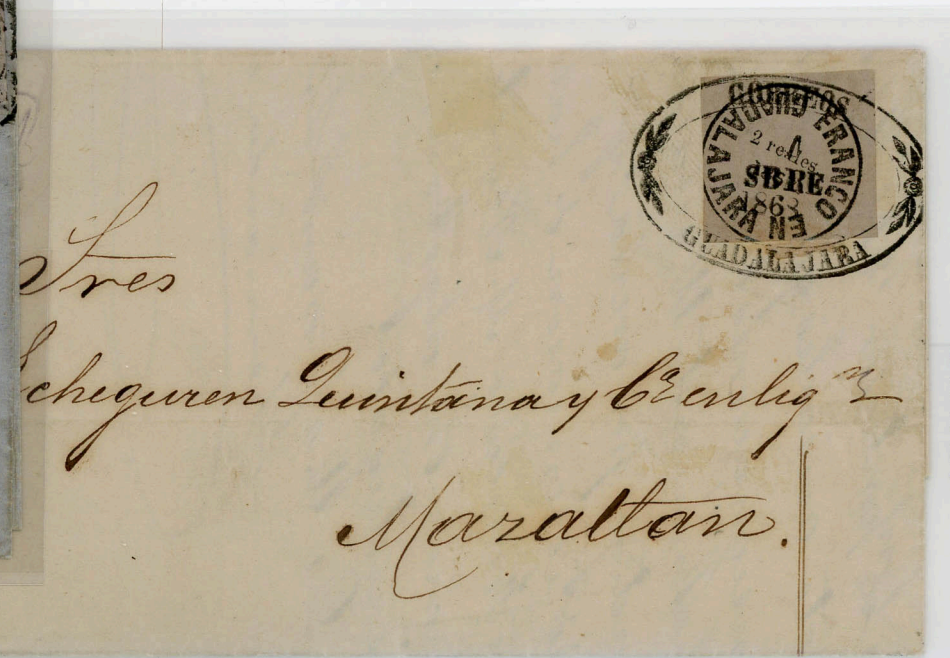 CORREOS
FRANCO EN GUADALAJARA
2 reales
SBRE
1868
GUADALAJARA
Sres
Echeguren Quintana y Cª en liqⁿ
Mazaltan.